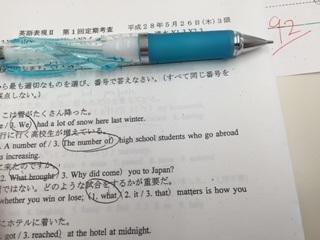 英語表現Ⅱ 第1回定期考査 平成28年5月26日(木)3限
92
から最も適切なものを選び、番号で答えなさい。(すべて同じ番号を
採点しない。)
こは雪がたくさん降った。
3. We) had a lot of snow here last winter.
行に行く高校生が増えている。
A number of / 3. The number of) high school students who go abroad
is increasing.
に来たのですか
2. What brought / 3. Why did come) you to Japan?
ではない。どのような試合をするかが重要だ。
whether you win or lose; (1. what / 2. it / 3. that) matters is how you
ホテルに着いた。
got / 3. reached) at the hotel at midnight.